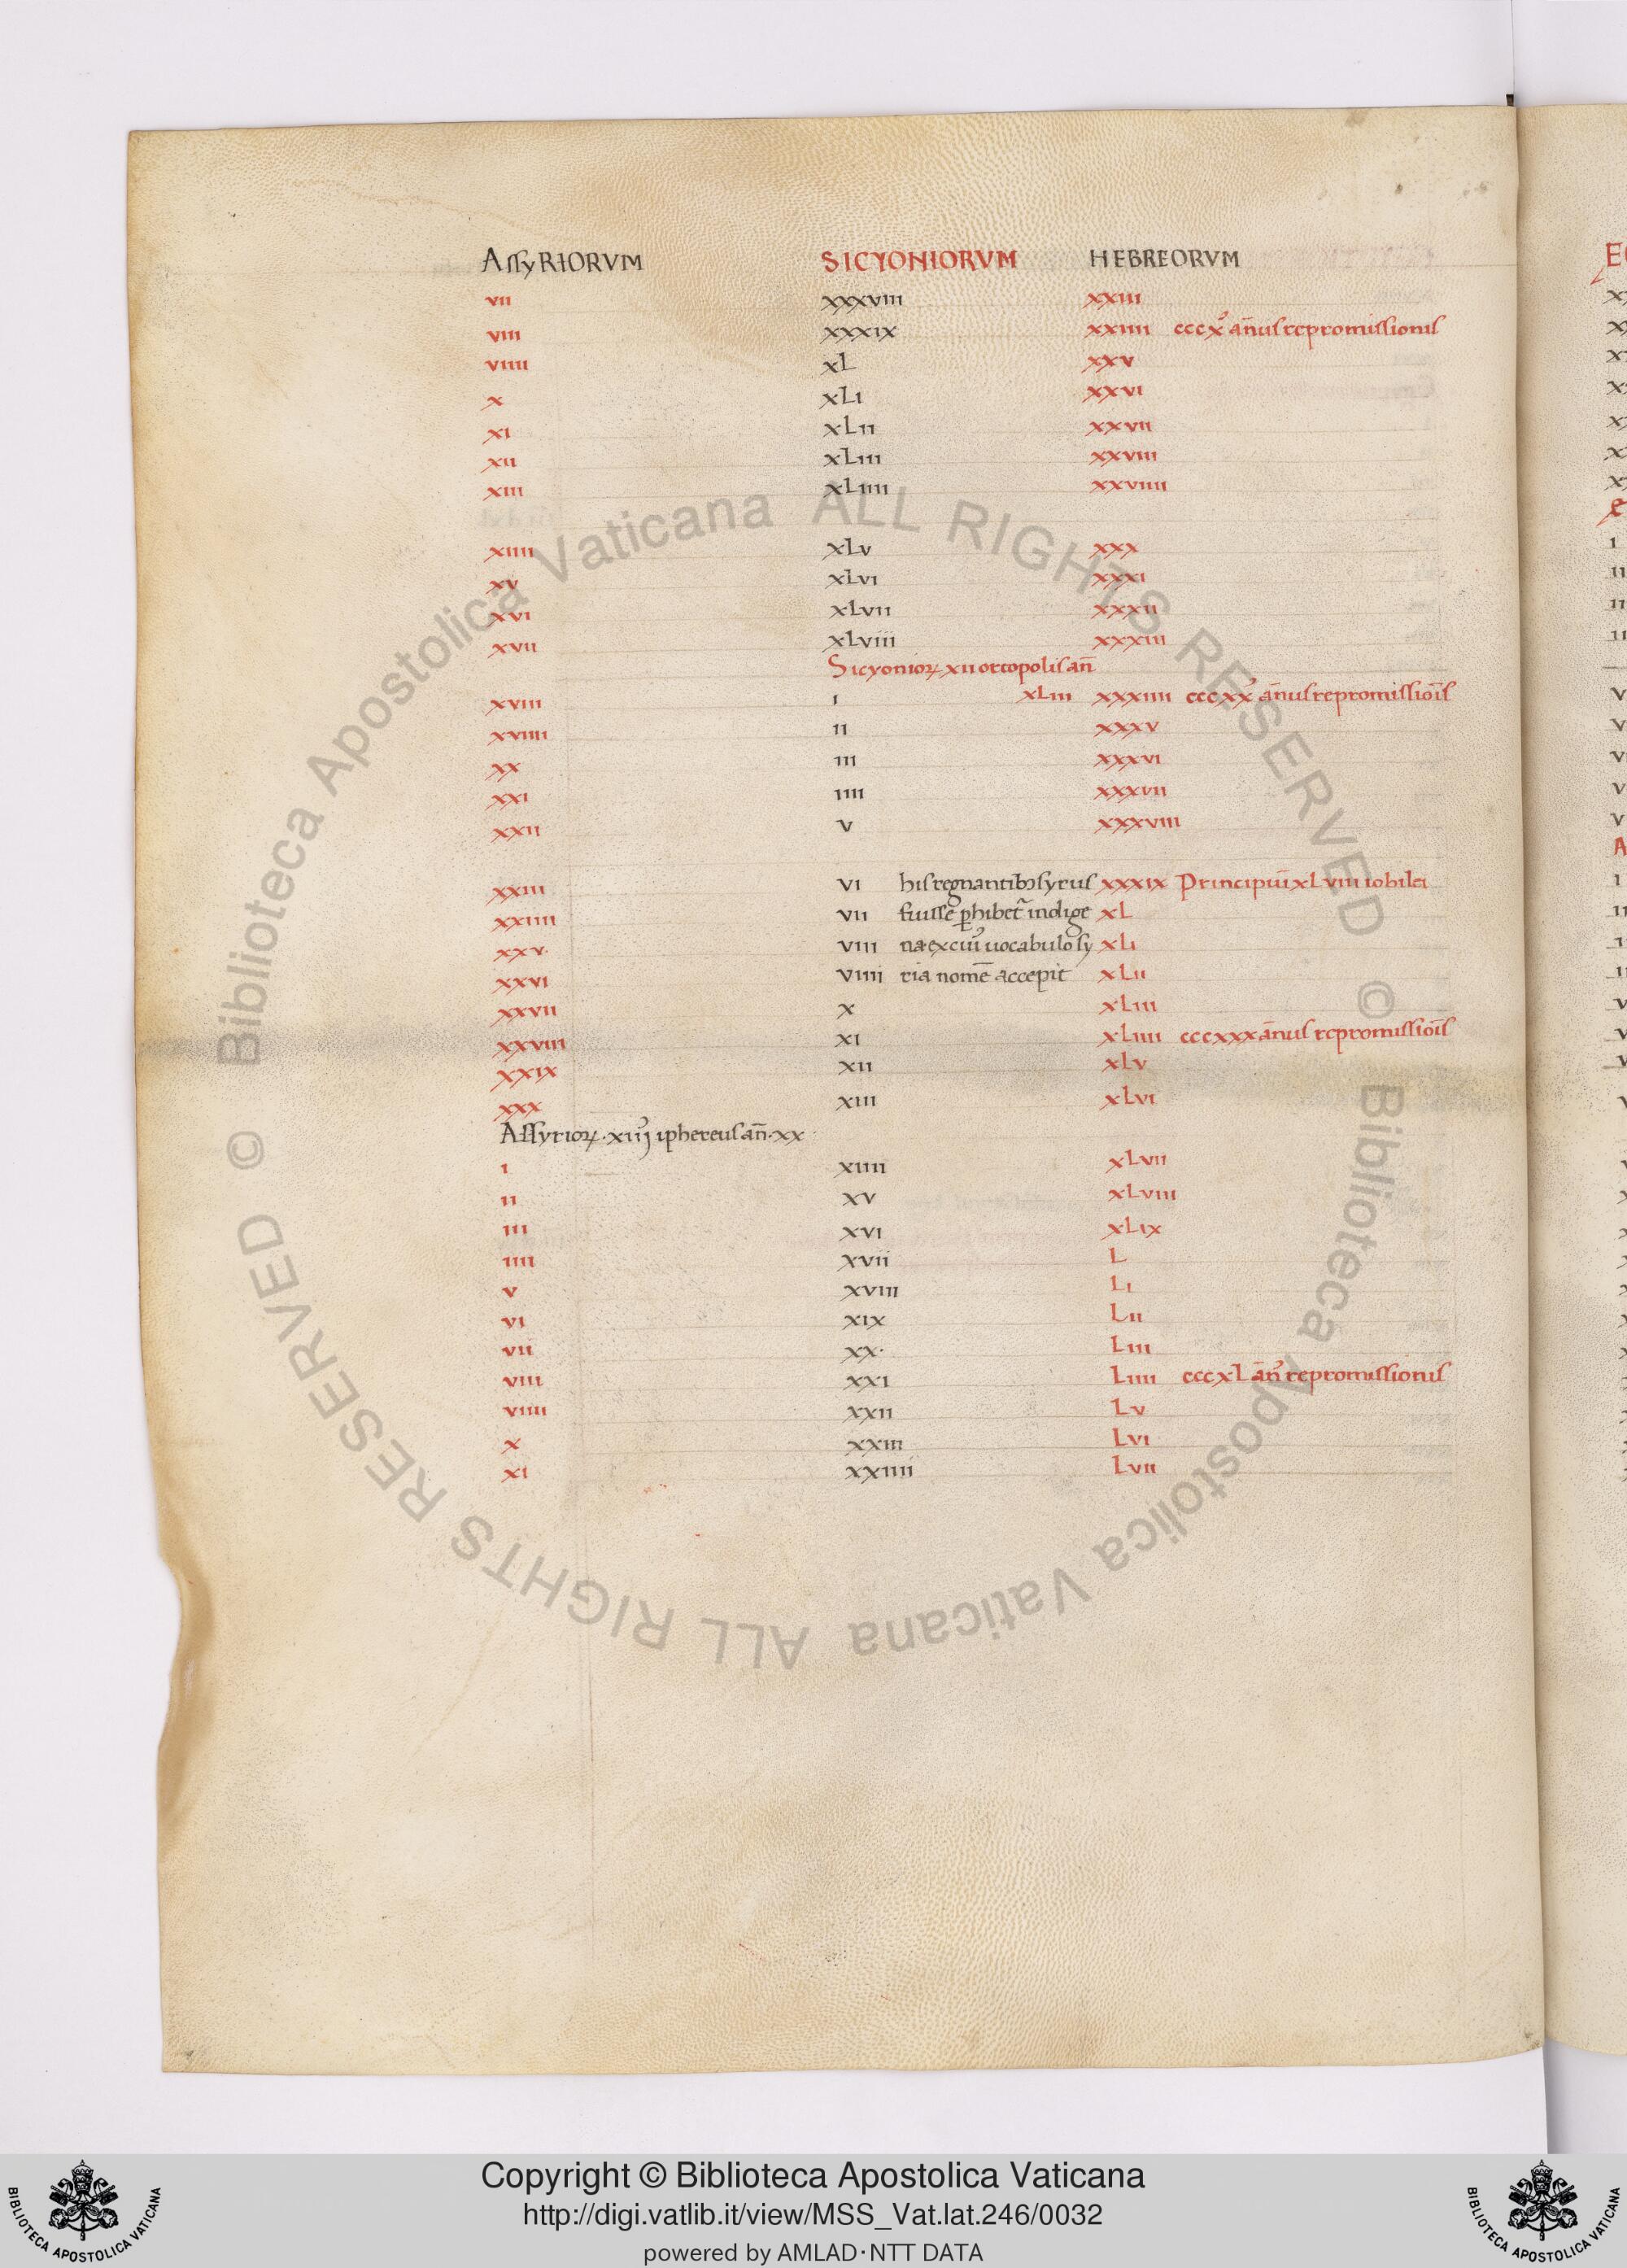 ASSyRIORVM SICYONIORVM HEBREORVM
vii xxxviii xxiii
viii xxxix xxiiii cccx° an̄us repromissionis
viiii xL xxv
x xLi xxvi
xi xLii xxvii
xii xLiii xxviii
xiii xLiiii xxviiii
xiiii xLv xxx
xv xLvi xxxi
xvi xLvii xxxii
xvii xLviii xxxiii
Sicyonioꝝ xii ortopolis an̄
xviii i xLiii xxxiiii cccxx° an̄us repromissiōis
xviiii ii xxxv
xx iii xxxvi
xxi iiii xxxvii
xxii v xxxviii
xxiii vi his regnantibꝰ syrus xxxix Principiū xLviii iobilei
xxiiii vii fuisse ꝑhibet᷑ indige xL
xxv· viii na ex cuiꝰ uocabulo sy xLi
xxvi viiii ria nomē accepit xLii
xxvii x xLiii
xxviii xi xLiiii cccxxx an̄us repromissiōis
xxix xii xLv
xxx xiii xLvi
Assyrioꝝ·xiiij iphereus an̄·xx
i xiiii xLvii
ii xv xLviii
iii xvi xLix
iiii xvii L
v xviii Li
vi xix Lii
vii xx· Liii
viii xxi Liiii cccxL an̄ꝰ repromissionis
viiii xxii Lv
x xxiii Lvi
xi xxiiii Lvii
© Biblioteca Apostolica Vaticana ALL RIGHTS RESERVED © Biblioteca Apostolica Vaticana ALL RIGHTS RESERVED
Copyright © Biblioteca Apostolica Vaticana
http://digi.vatlib.it/view/MSS_Vat.lat.246/0032
powered by AMLAD·NTT DATA
BIBLIOTECA APOSTOLICA VATICANA
BIBLIOTECA APOSTOLICA VATICANA